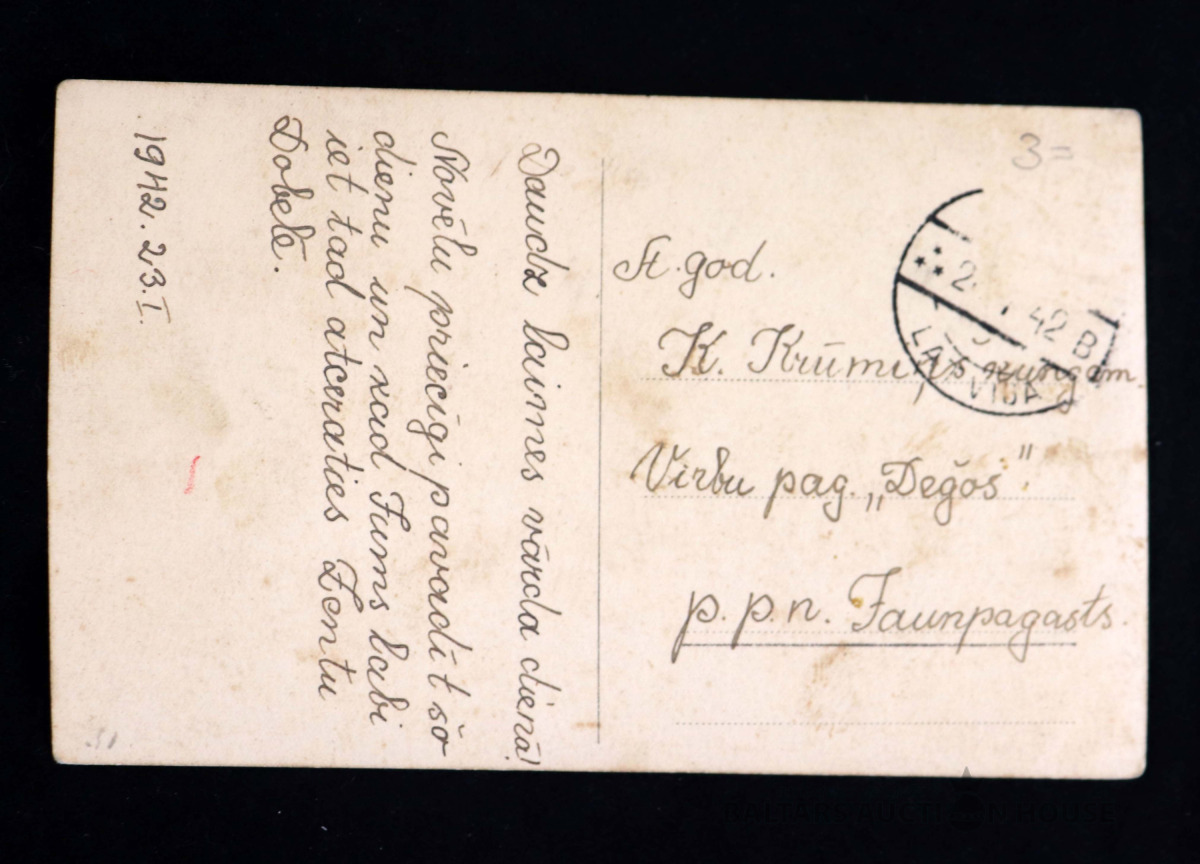 Daudz laimes vārda dienā!
Novēlu priecīgi pavadīt šo
dienu un kad Jums labi
iet tad atceraties Zentu
Dobelē.
1942. 23. I.
3=
A. god.
K. Krūmiņš kungam.
Virbu pag. „Deģos"
p. p. n. Jaunpagasts.
2 42 B
LATVIJA
BALTARS AUCTION HOUSE